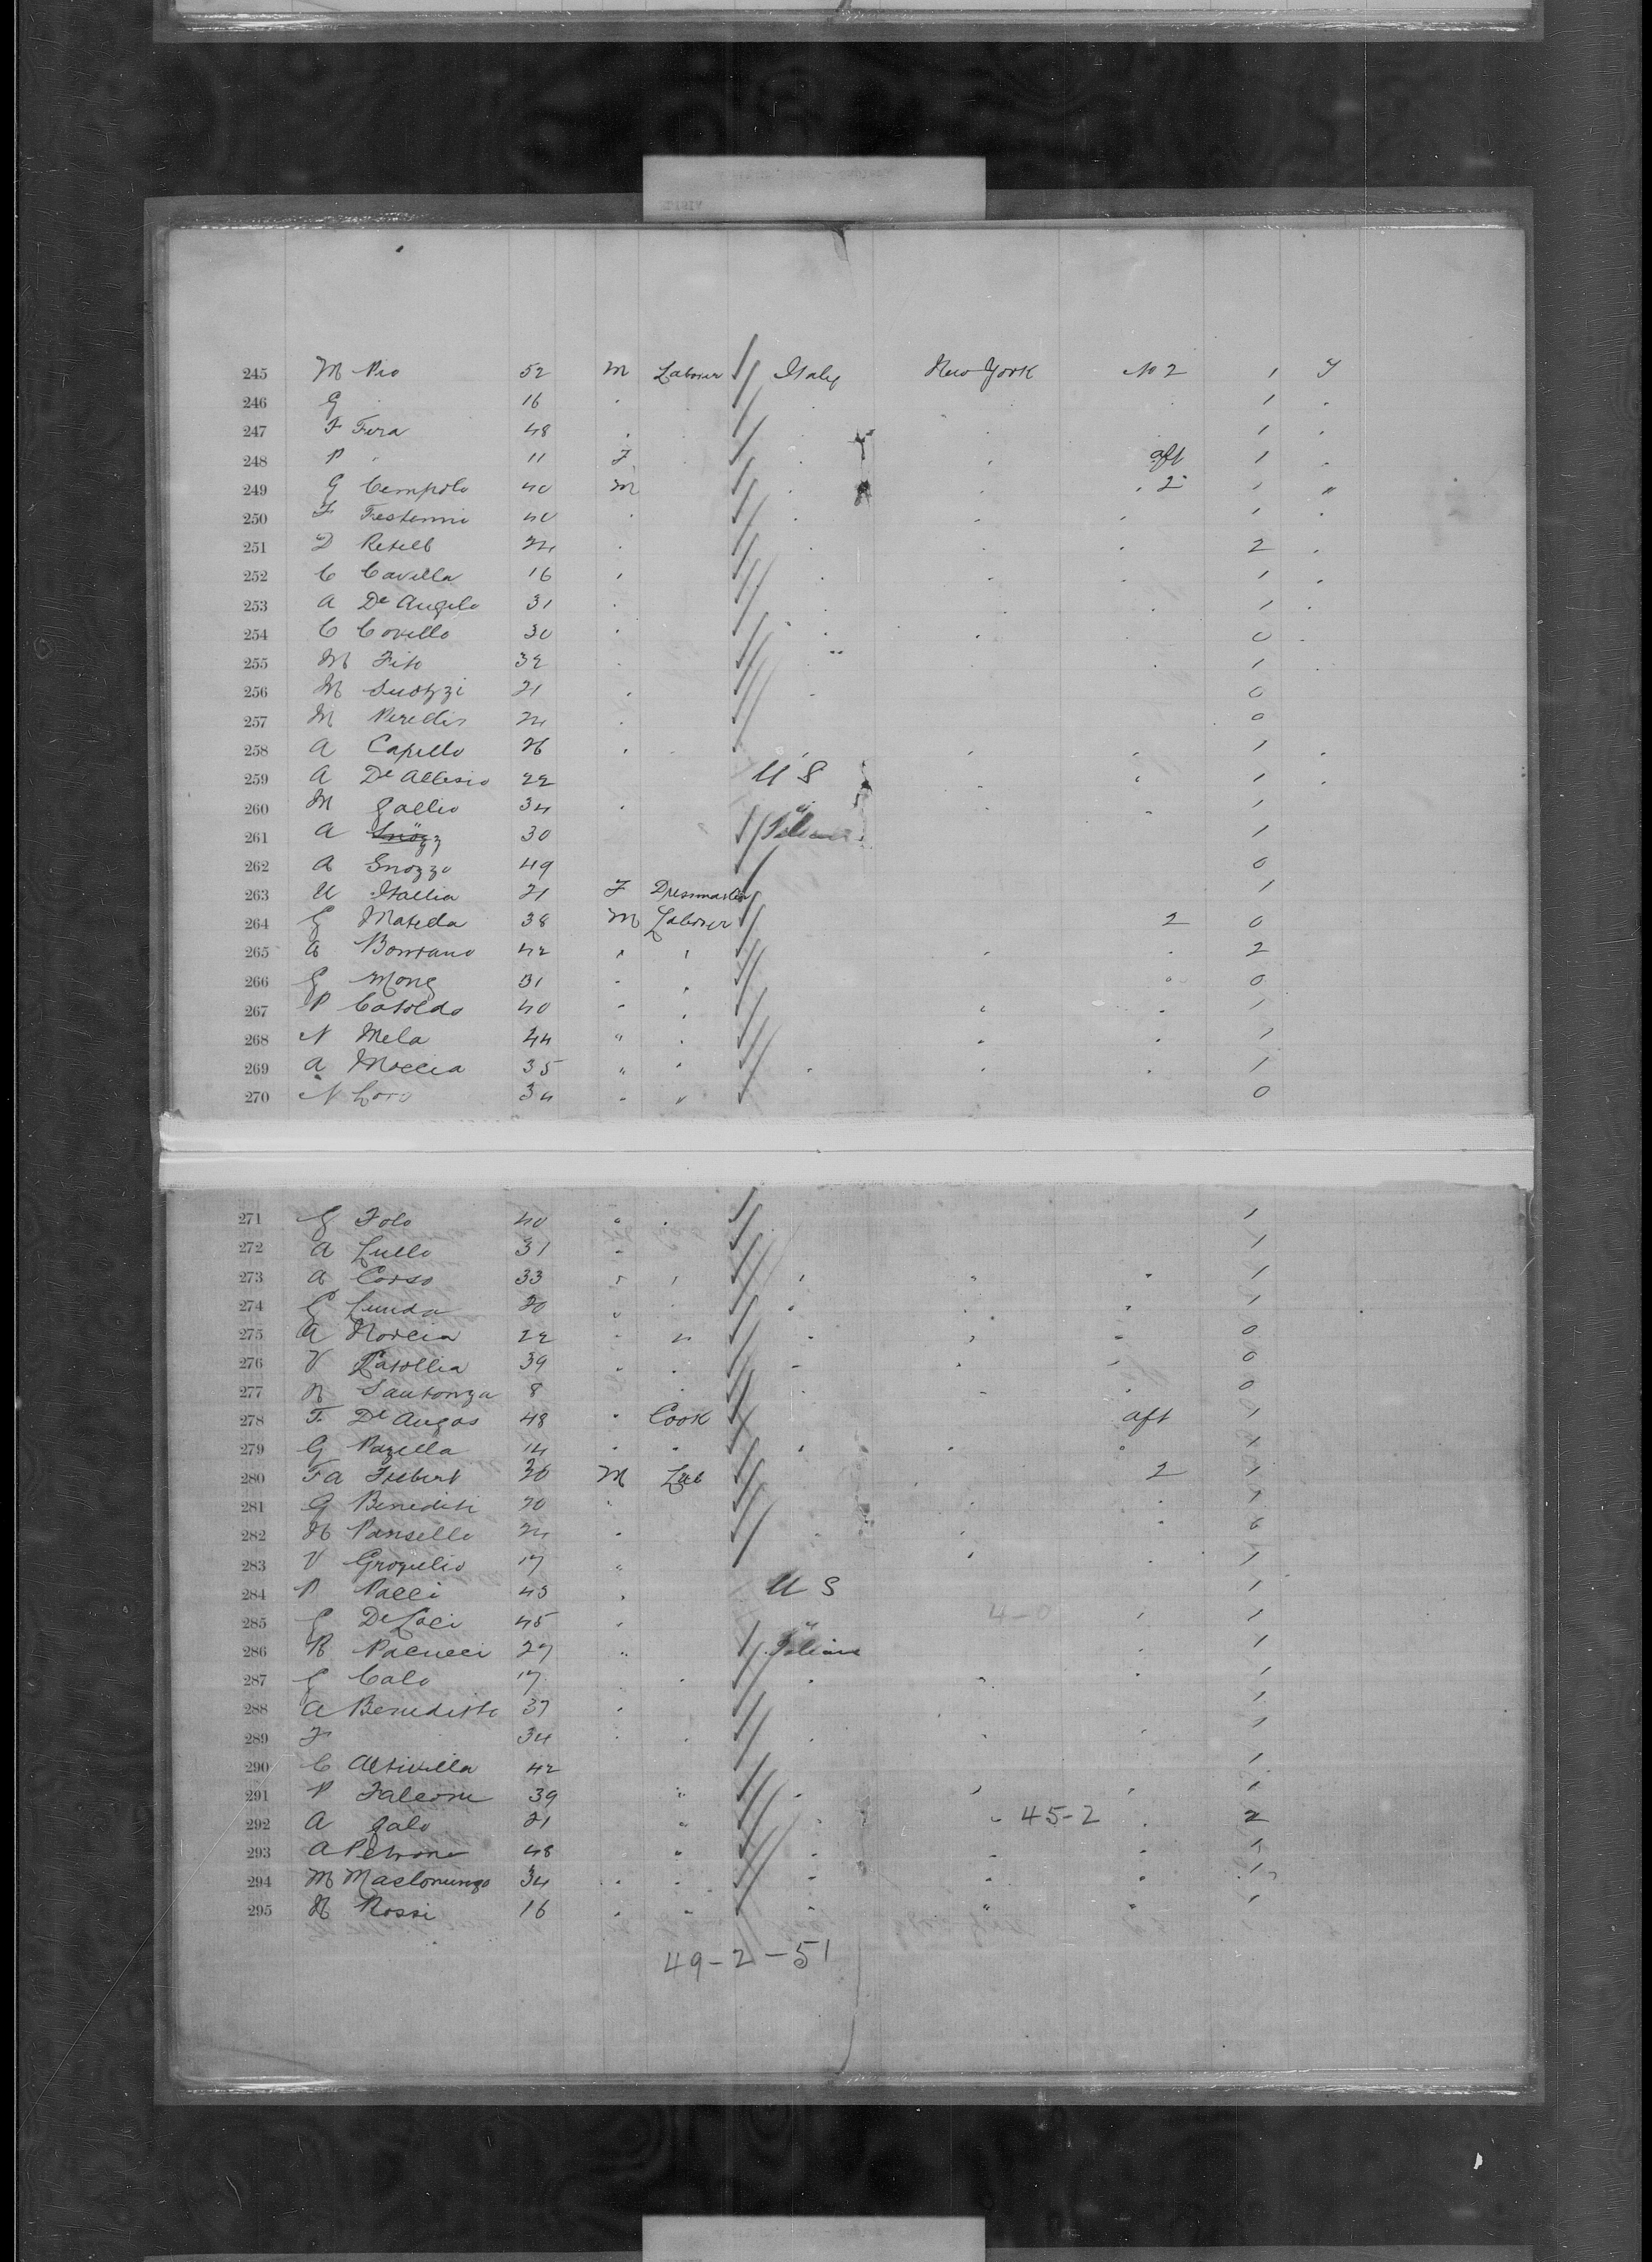 245 M Pio 52 M Laborer Italy New York No 2 1 Y
246 G " 16 " 1 "
247 F Fera 48 " 1 "
248 P " 11 F aft 1 "
249 G Campolo 40 M " 2 1 "
250 F Festerini 40 " 1 "
251 D 24 " 2 "
252 C Cavilla 16 " 1 "
253 A De Angelo 31 " 1 "
254 C Covello 30 " 0 "
255 M Fito 32 " 1
256 M 21 " 0
257 M 24 " 0
258 A Capello 26 " 1 "
259 A De Allesio 22 U S 1 "
260 M Gallio 34 " 1
261 A 30 Italian 1
262 A Gnozzo 49 0
263 U Itallia 21 F Dressmaker 1
264 G Matella 38 M Laborer 2 0
265 A Bontano 42 " " 2
266 G Mong 31 " " 0
267 P Cataldo 40 " " 1
268 N Mela 44 " " 1
269 A Moccia 35 " " 1
270 N Loro 34 " " 0
271 G Folo 40 " " 1
272 A Lullo 31 " 1
273 A Corso 33 " " 1
274 G Lunda 20 " 1
275 A Norcia 22 " " 0
276 V 39 " " 0
277 N Santonza 8 " 0
278 F. De Angos 48 " Cook aft 1
279 G Pazella 14 " " " 1
280 F A 30 M Lab 2 1
281 G Benediti 20 " 1
282 N Pansello 24 " 0
283 V 17 " 1
284 P Pacci 43 " U S 1
285 G De Laci 45 " 4-0 1
286 R Pacucci 27 " Italian 1
287 G Calo 17 " 1
288 A Beneditto 37 " 1
289 F 34 " " 1
290 C Altivilla 42 1
291 P Falcone 39 " 1
292 A Galo 21 " 45-2 2
293 A Petrone 48 " 1
294 M 34 " " 1
295 N Rossi 16 " " 1
49-2-51